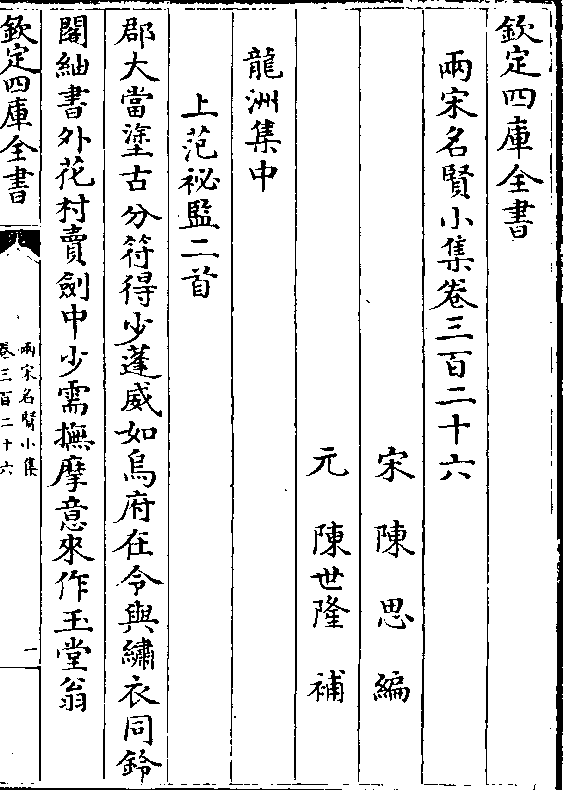 欽定四庫全書
兩宋名賢小集卷三百二十六
宋 陳思 編
元 陳世隆 補
龍洲集中
上范祕監二首
郡大當塗古分符得少蓬威如烏府在令與繡衣同鈴
閣紬書外花村賣劍中少需撫摩意來作玉堂翁
欽定四庫全書
兩宋名賢小集
卷三百二十六
一